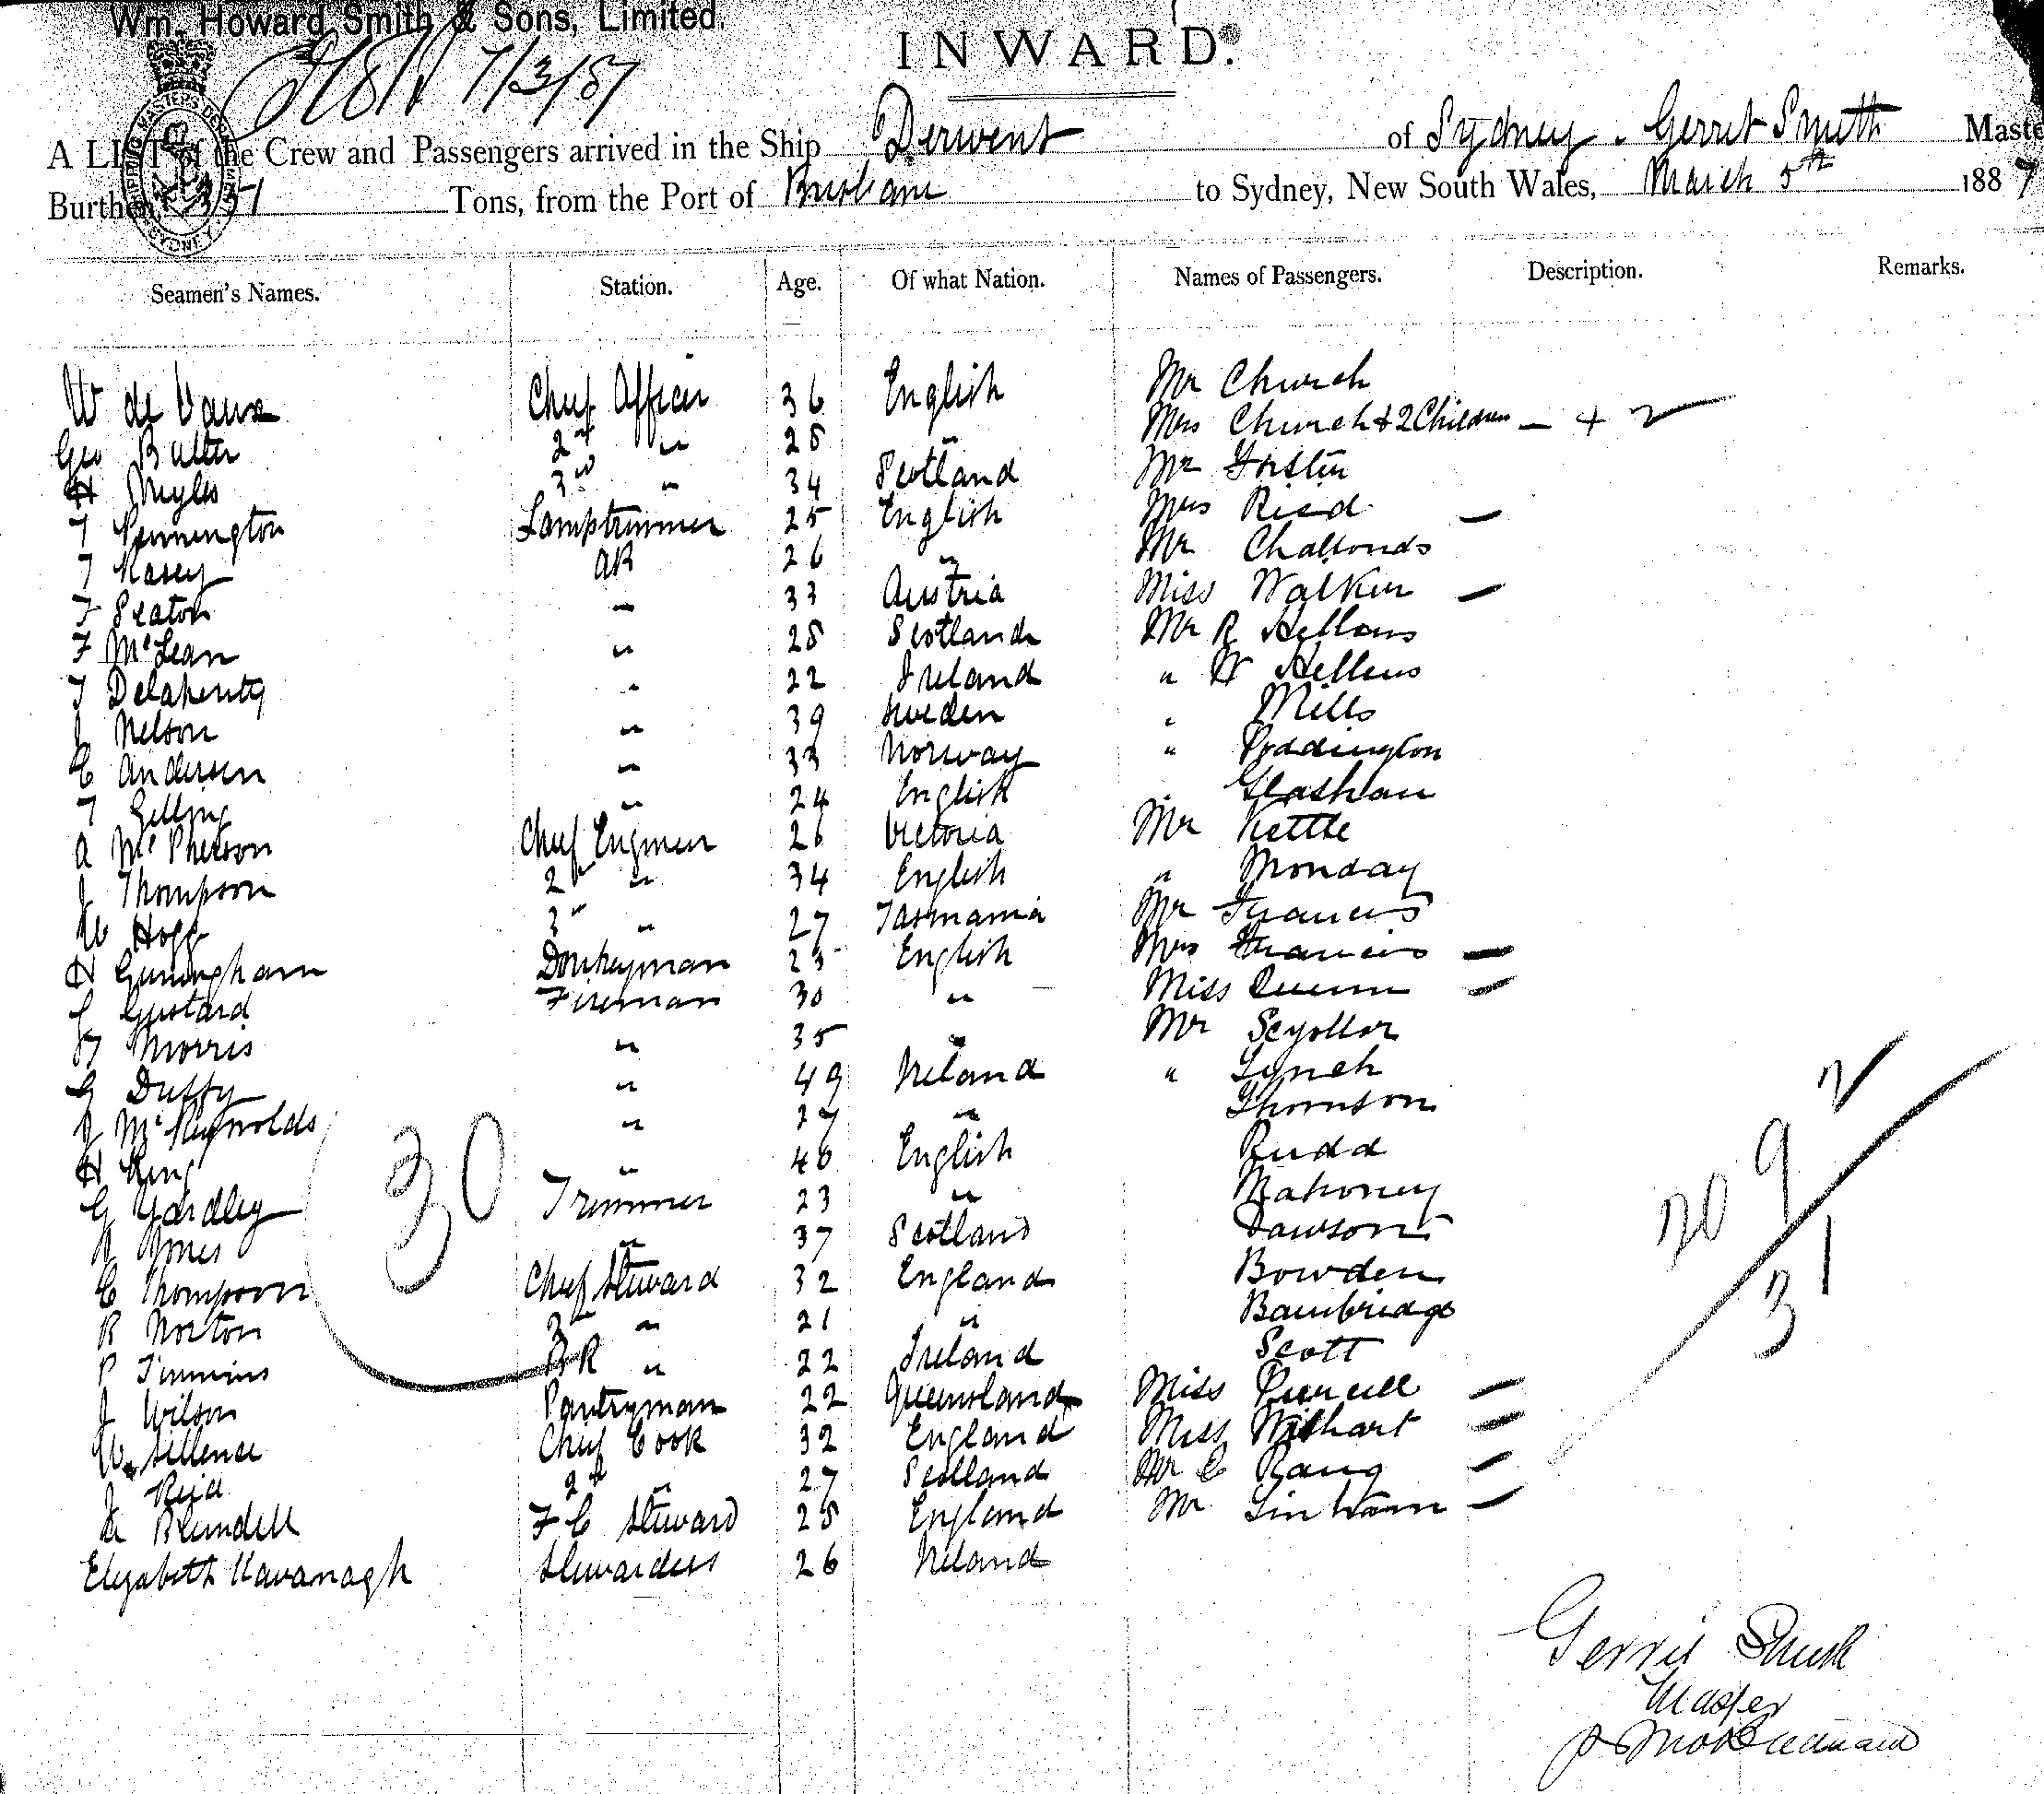 Wm. Howard Smith & Sons, Limited.
INWARD.
7/3/87
A LIST of the Crew and Passengers arrived in the Ship Derwent of Sydney. Gerrit Smith Maste
Burthen 351 Tons, from the Port of Brisbane to Sydney, New South Wales, March 5th 1887
Seamen's Names. Station. Age. Of what Nation. Names of Passengers. Description. Remarks.
W de Vaux Chief Officer 36 English Mr Church
Geo Butler 2nd " 28 " Mrs Church & 2 Children — + 2
H Myles 3rd " 34 Scotland Mr
T Pennington Lamptrimmer 25 English Mrs Reed —
T Kasey AB 26 " Mr
F Seaton " 33 Austria Miss Walker —
F McLean " 28 Scotland Mr R
T Delahenty " 22 Ireland " W Hellens
J Nelson " 39 Sweden " Mills
C Andersen " 33 Norway " Poddington
T Gelling " 24 English " Glashan
A McPherson Chief Engineer 26 Victoria Mr Kettle
J Thompson 2 " 34 English " Monday
W Hogg 3 " 27 Tasmania Mr Francis
H Guningham Donkeyman 25 English Mrs Francis —
G Gustard Fireman 30 " Miss Quinn —
Morris " 35 " Mr
G Duffy " 49 Ireland " Lynch
J McReynolds " 27 " Thomson
H King " 40 English Rudd
G Yardley Trimmer 23 " Mahoney
Jones " 37 Scotland Dawson
C Thompson Chief Steward 32 England Bowden
R Norton 2 " 21 " Bambridge
P Timmins BR " 22 Ireland Scott
J Wilson Pantryman 22 Queensland Miss Purcell —
W Sillence Chief Cook 32 England Miss Wishart —
J Reid 2d " 27 Scotland Mr C —
Blundell F C Steward 25 England Mr —
Elizabeth Kavanagh Stewardess 26 Ireland
30
20 9 2
31
Gerrit Smith
Master